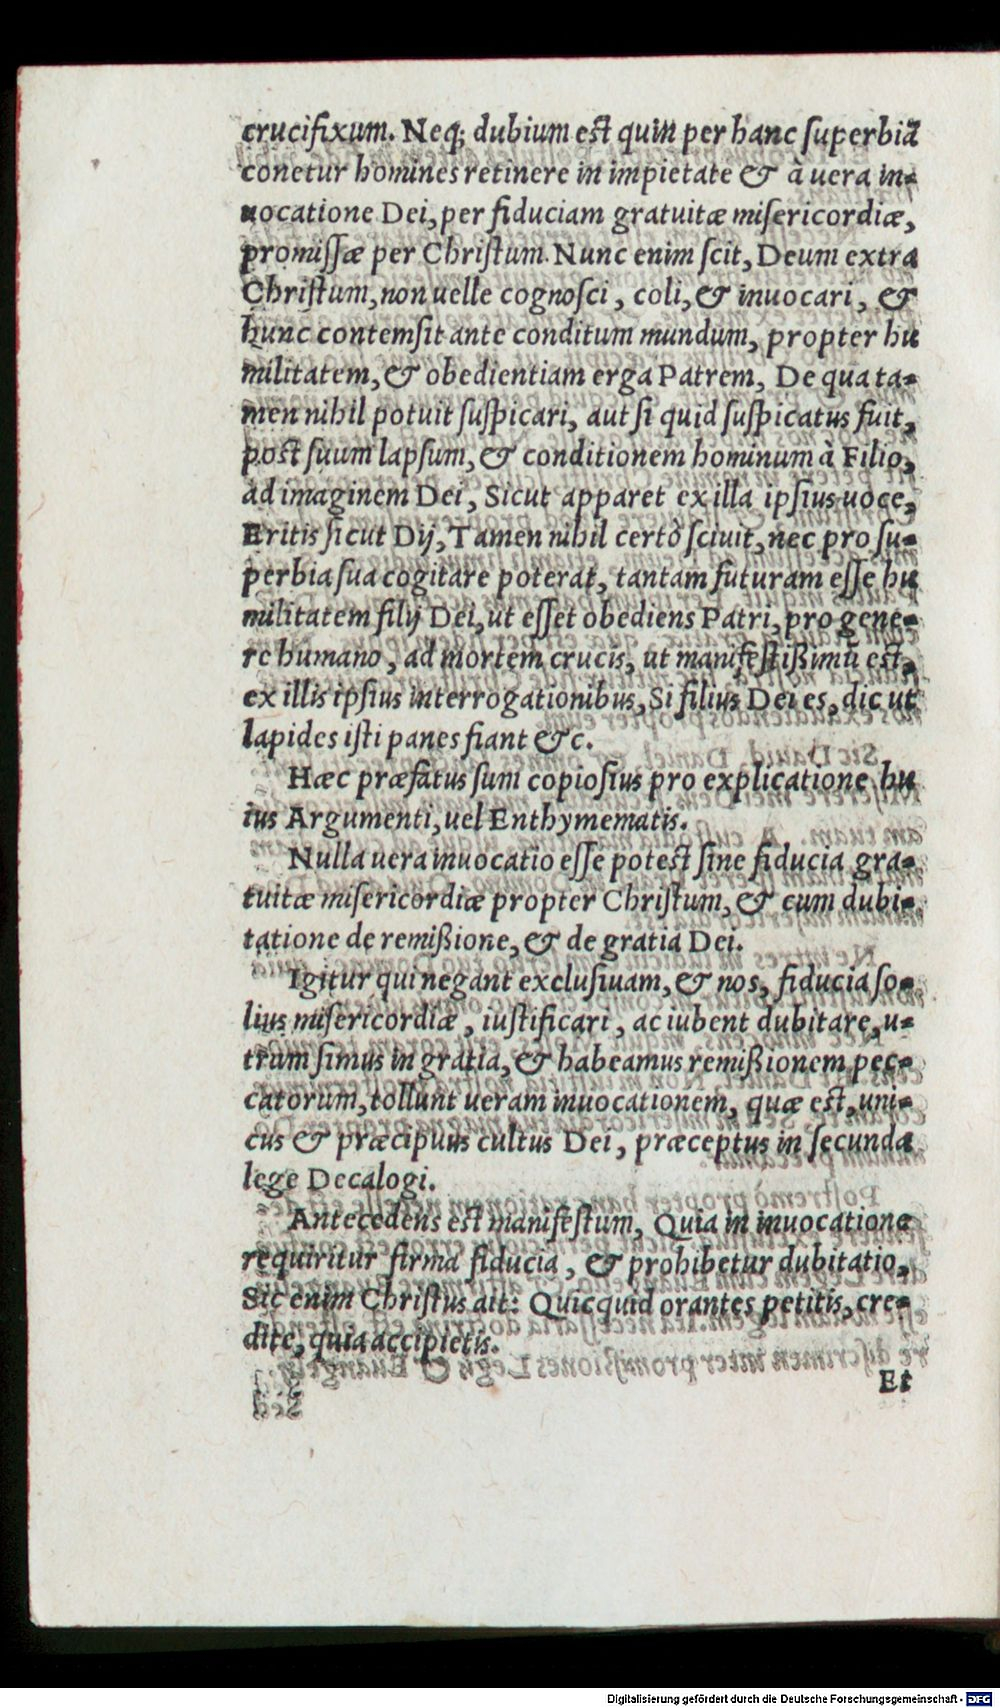 crucifixum. Neq; dubium est quin per hanc superbiā
conetur homines retinere in impietate & à uera in-
uocatione Dei, per fiduciam gratuitæ misericordiæ,
promissæ per Christum. Nunc enim scit, Deum extra
Christum, non uelle cognosci, coli, & inuocari, &
hunc contemsit ante conditum mundum, propter hu
militatem, & obedientiam erga Patrem, De qua ta-
men nihil potuit suspicari, aut si quid suspicatus fuit,
post suum lapsum, & conditionem hominum à Filio,
ad imaginem Dei, Sicut apparet ex illa ipsius uoce,
Eritis sicut Dij, Tamen nihil certò sciuit, nec pro su-
perbia sua cogitare poterat, tantam futuram esse hu
militatem filij Dei, ut esset obediens Patri, pro gene-
re humano, ad mortem crucis, ut manifestißimū est,
ex illis ipsius interrogationibus, Si filius Dei es, dic ut
lapides isti panes fiant &c.
Hæc præfatus sum copiosius pro explicatione hu
ius Argumenti, uel Enthymematis.
Nulla uera inuocatio esse potest sine fiducia gra-
tuitæ misericordiæ propter Christum, & cum dubi-
tatione de remißione, & de gratia Dei.
Igitur qui negant exclusiuam, & nos, fiducia so-
lius misericordiæ, iustificari, ac iubent dubitare, u-
trum simus in gratia, & habeamus remißionem pec-
catorum, tollunt ueram inuocationem, quæ est, uni-
cus & præcipuus cultus Dei, præceptus in secunda
lege Decalogi.
Antecedens est manifestum, Quia in inuocatione
requiritur firma fiducia, & prohibetur dubitatio,
Sic enim Christus ait: Quicquid orantes petitis, cre-
dite, quia accipietis.
Et
Digitalisierung gefördert durch die Deutsche Forschungsgemeinschaft - DFG